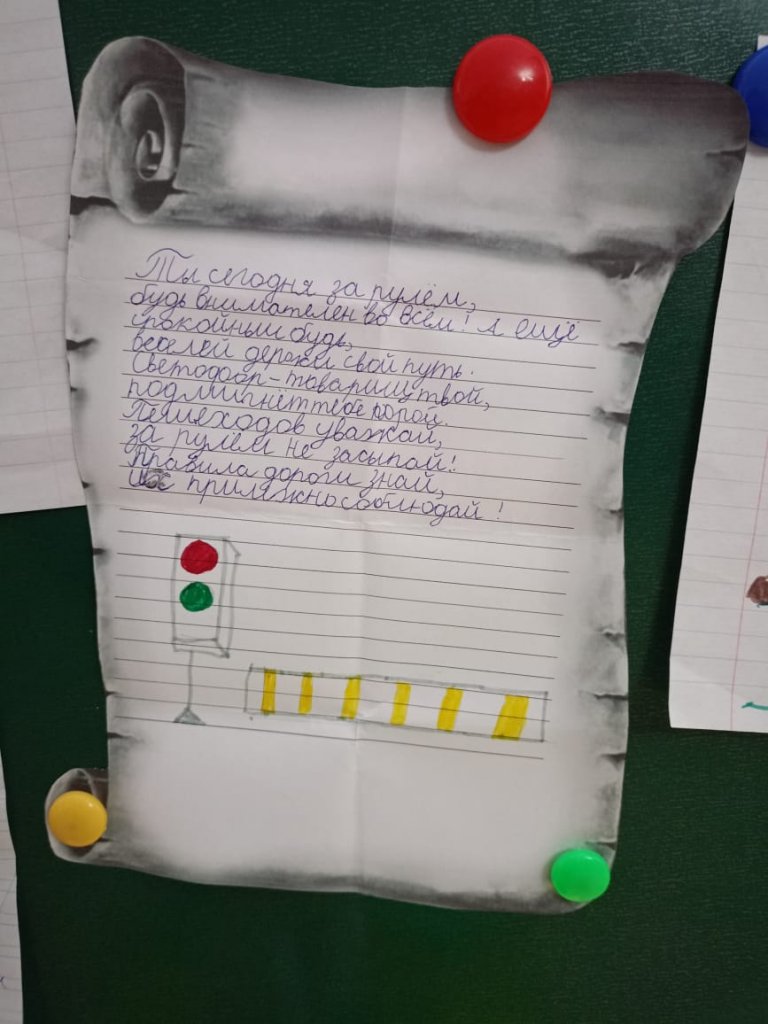 Ты сегодня за рулём,
будь внимателен во всём! А ещё
спокойным будь,
веселей держи свой путь.
Светофор-товарищ твой,
подмигнёт тебе порой.
Пешеходов уважай,
за рулём не засыпай!
Правила дороги знай,
прилежно соблюдай!